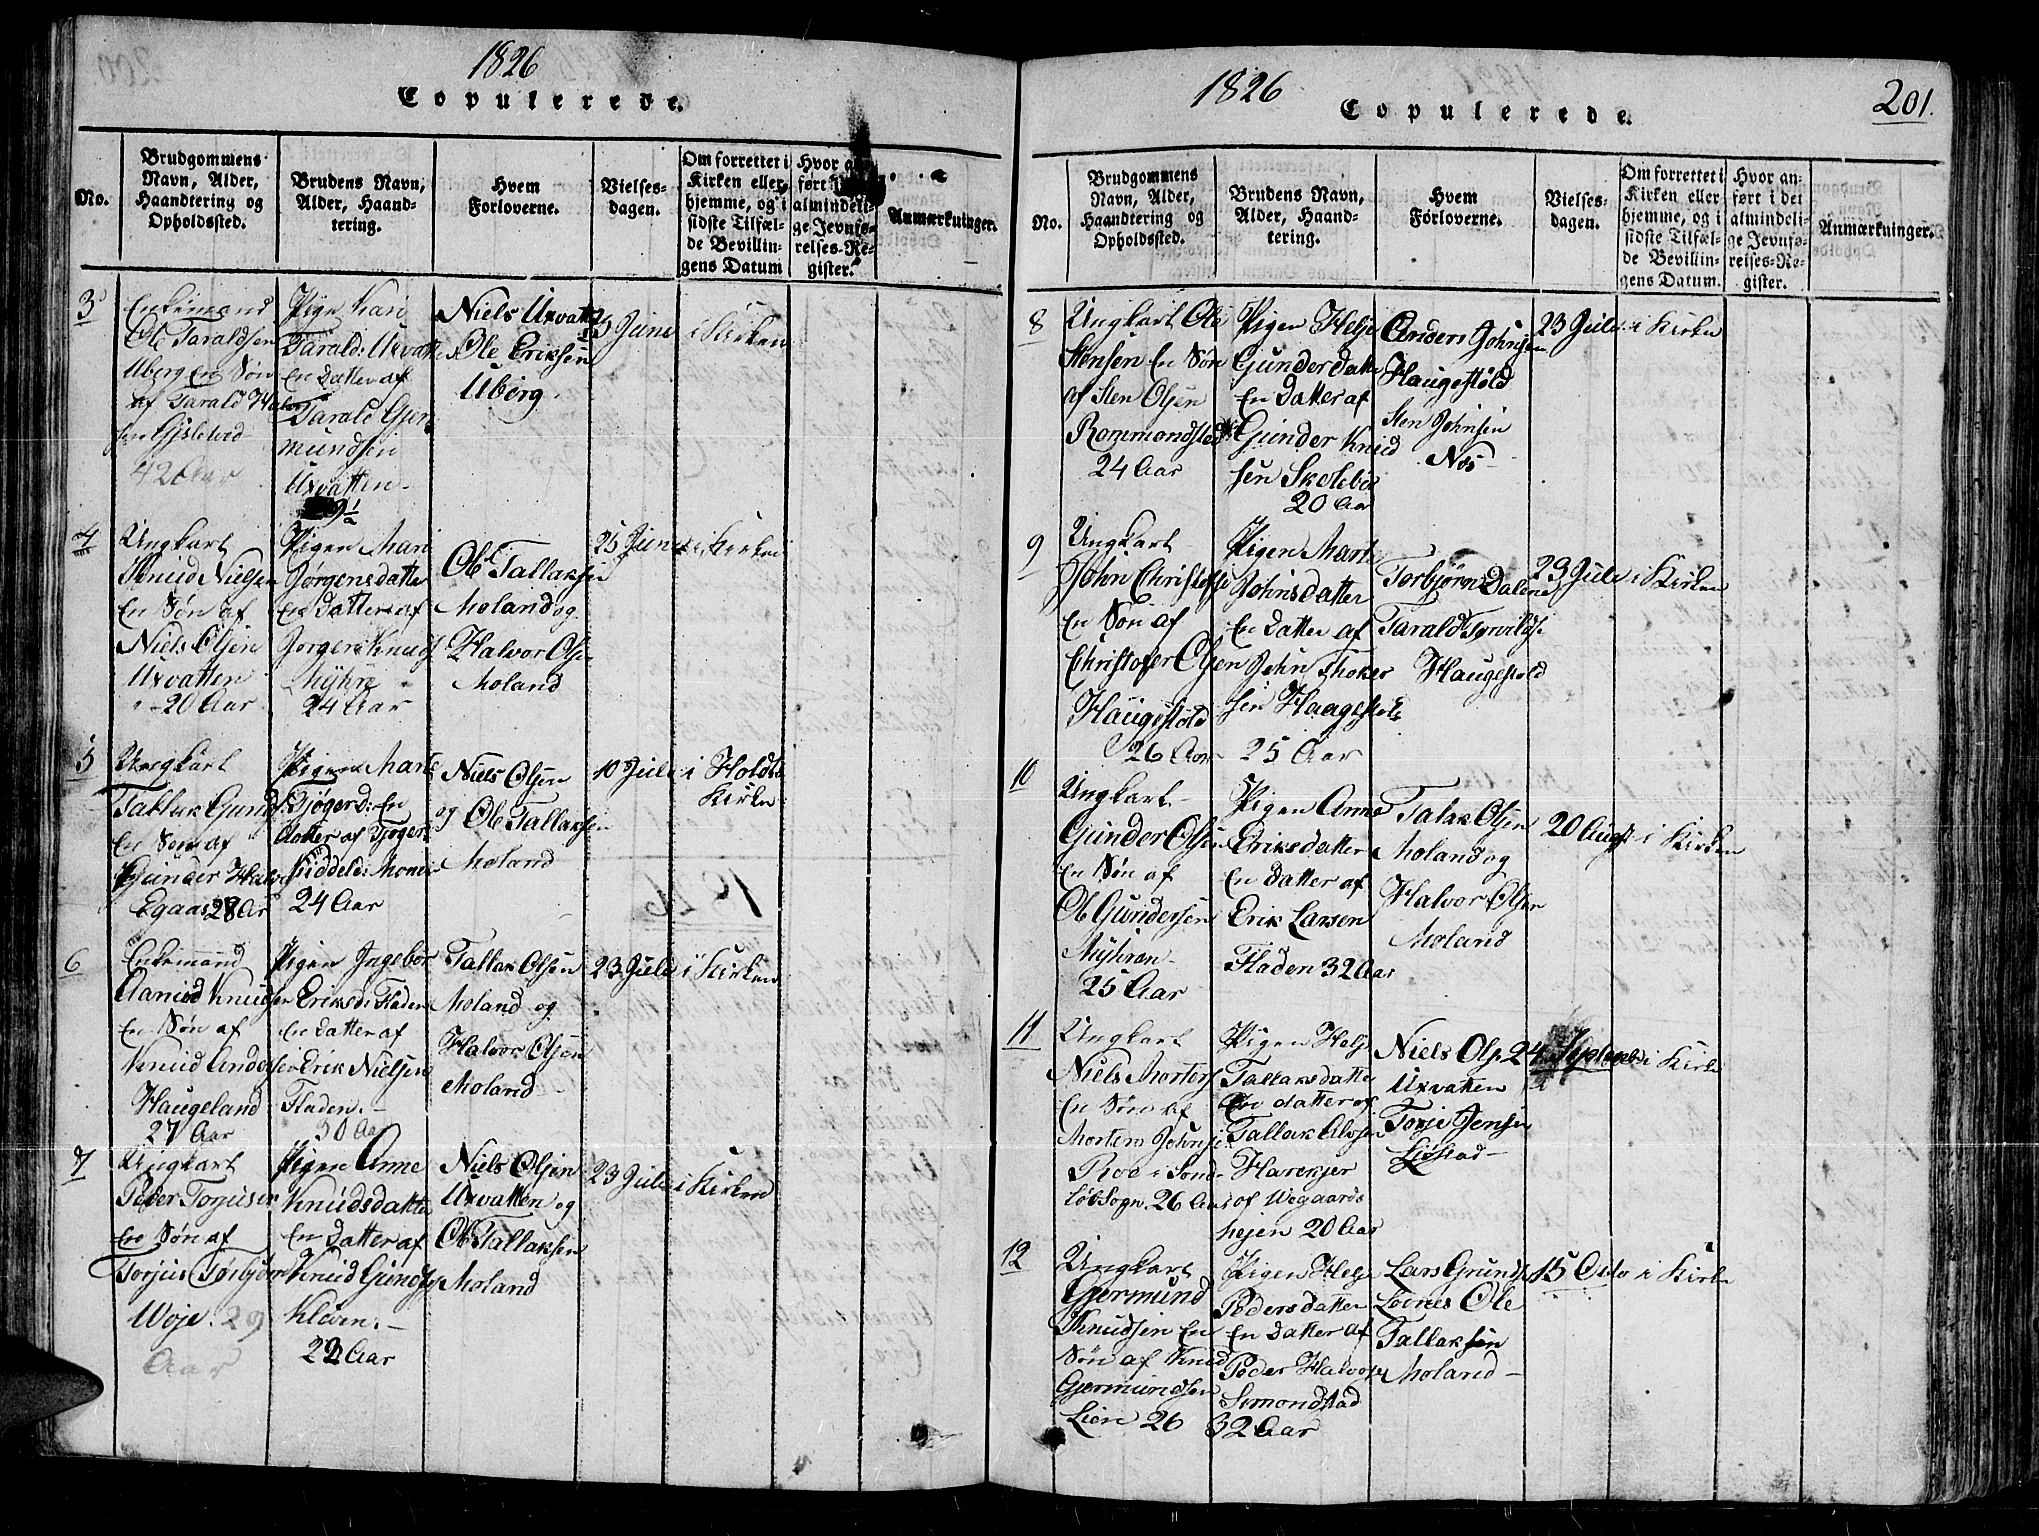 1826
Copulerede.
No.
Brudgommens Navn, Alder, Haandtering og Opholdssted.
Brudens Navn, Alder, Haandtering.
Hvem Forloverne.
Vielses-dagen.
Om forrettet i Kirken eller hjemme, og i sidste Tilfælde Bevillingens Datum
Hvor anført i almindelige Jevnførelses-Register.
Anmærkninger.
3
Enkemand
Ole Taraldsen
Uberg En Søn
af Tarald Halvor
sen Gjslevd
42 Aar
Pige Kari
Tarald: Uxvatt
En Datter af
Tarald Gjer
mundsen
Uxvatten
Niels Uxvatten
Ole Eriksen
Uberg.
25 Juni
i Kirken
4
Ungkarl
Knud Nielsen
En Søn af
Niels Olsen
Uxvatten
20 Aar
Pigen Mari
Jørgensdatter
En Datter af
Jørgen Knuds
Myhre
24 Aar
Ole Tallaksen
Moland og
Halvor Olsen
Moland
25 Juni
i Kirken
5
Ungkarl
Tallak Gunds
En Søn af
Gunder Halvor
Egaas 28 Aar
Pigen Marte
Gjøgerd: En
datter af Tjøger
Siddeld: Monee
24 Aar
Niels Olsen
og Ole Tallaksen
Moland
10 Juli
i Holdts
Kirke
6
Enkemand
Aanud Knudsen
En Søn af
Knud Anders
Haugeland
27 Aar
Pigen Ingebor
Eriksd: Fladen
En Datter af
Erik Nielsen
Fladen.
30 Aar
Tallak Olsen
Moland og
Halvor Olsen
Moland
23 Juli
i Kirken
7
Ungkarl
Peder Torjusen
En Søn af
Torjus Torbjørn
Woje. 29
Aar
Pigen Anne
Knudsdatter
En Datter af
Knud Gunds
Kleven.
22 Aar
Niels Olsen
Uxvatten og
Ole Tallaksen
Moland
23 Juli
i Kirken
1826
Copulerede.
201.
No.
Brudgommens Navn, Alder, Haandtering og Opholdssted.
Brudens Navn, Alder, Haandtering.
Hvem Forloverne.
Vielses-dagen.
Om forrettet i Kirken eller hjemme, og i sidste Tilfælde Bevillingens Datum.
Hvor anført i det almindelige Jevnførelses-Register.
Anmærkninger.
8
Ungkarl Ole
Stensen En Søn
af Sten Olsen
Rommondsted
24 Aar
Pigen Helje
Gunderdatter
En Datter af
Gunder Knud
sen Skolebir
20 Aar
Anders Johnsen
Haugestøld
Sten Johnsen
Nøs
23 Juli
i Kirken
9
Ungkarl
John Christofs
En Søn af
Christofer Olsen
Haugestøld
26 Aar
Pigen Marte
Johnsdatter
En Datter af
John Thoker
sen Haugestøl
25 Aar
Torbjørn Dalene
Tarald Torvilds.
Haugestøld
23 Juli
i Kirken
10
Ungkarl
Gunder Olsen
En Søn af
Ole Gundersen
Myhren
25 Aar
Pigen Anne
Eriksdatter
En Datter af
Erik Larsen
Fladen 32 Aar
Talak Olsen
Moland og
Halvor Olsen
Moland
20 Aug
i Kirken
11
Ungkarl
Niels Mortens
En Søn af
Morten Johnse
Roe i Sonde
løb Sogn 26 Aar
Pigen Helje
Tallaksdatter
En datter af
Tallak Alvsen
Harekjer
af Wegaards
hejen 20 Aar
Niels Ols
Uxvatten
Torje Jensen
Liøstad
24 September
i Kirke
12
Ungkarl
Gjermund
Knudsen En
Søn af Knud
Gjermundsen
Lien 26
Pigen Helje
Pedersdatter
En Datter af
Peder Halvors
Simondstad
32 Aar
Lars Grunds
Loines Ole
Tallaksen
Moland
15 Octo
i Kirke